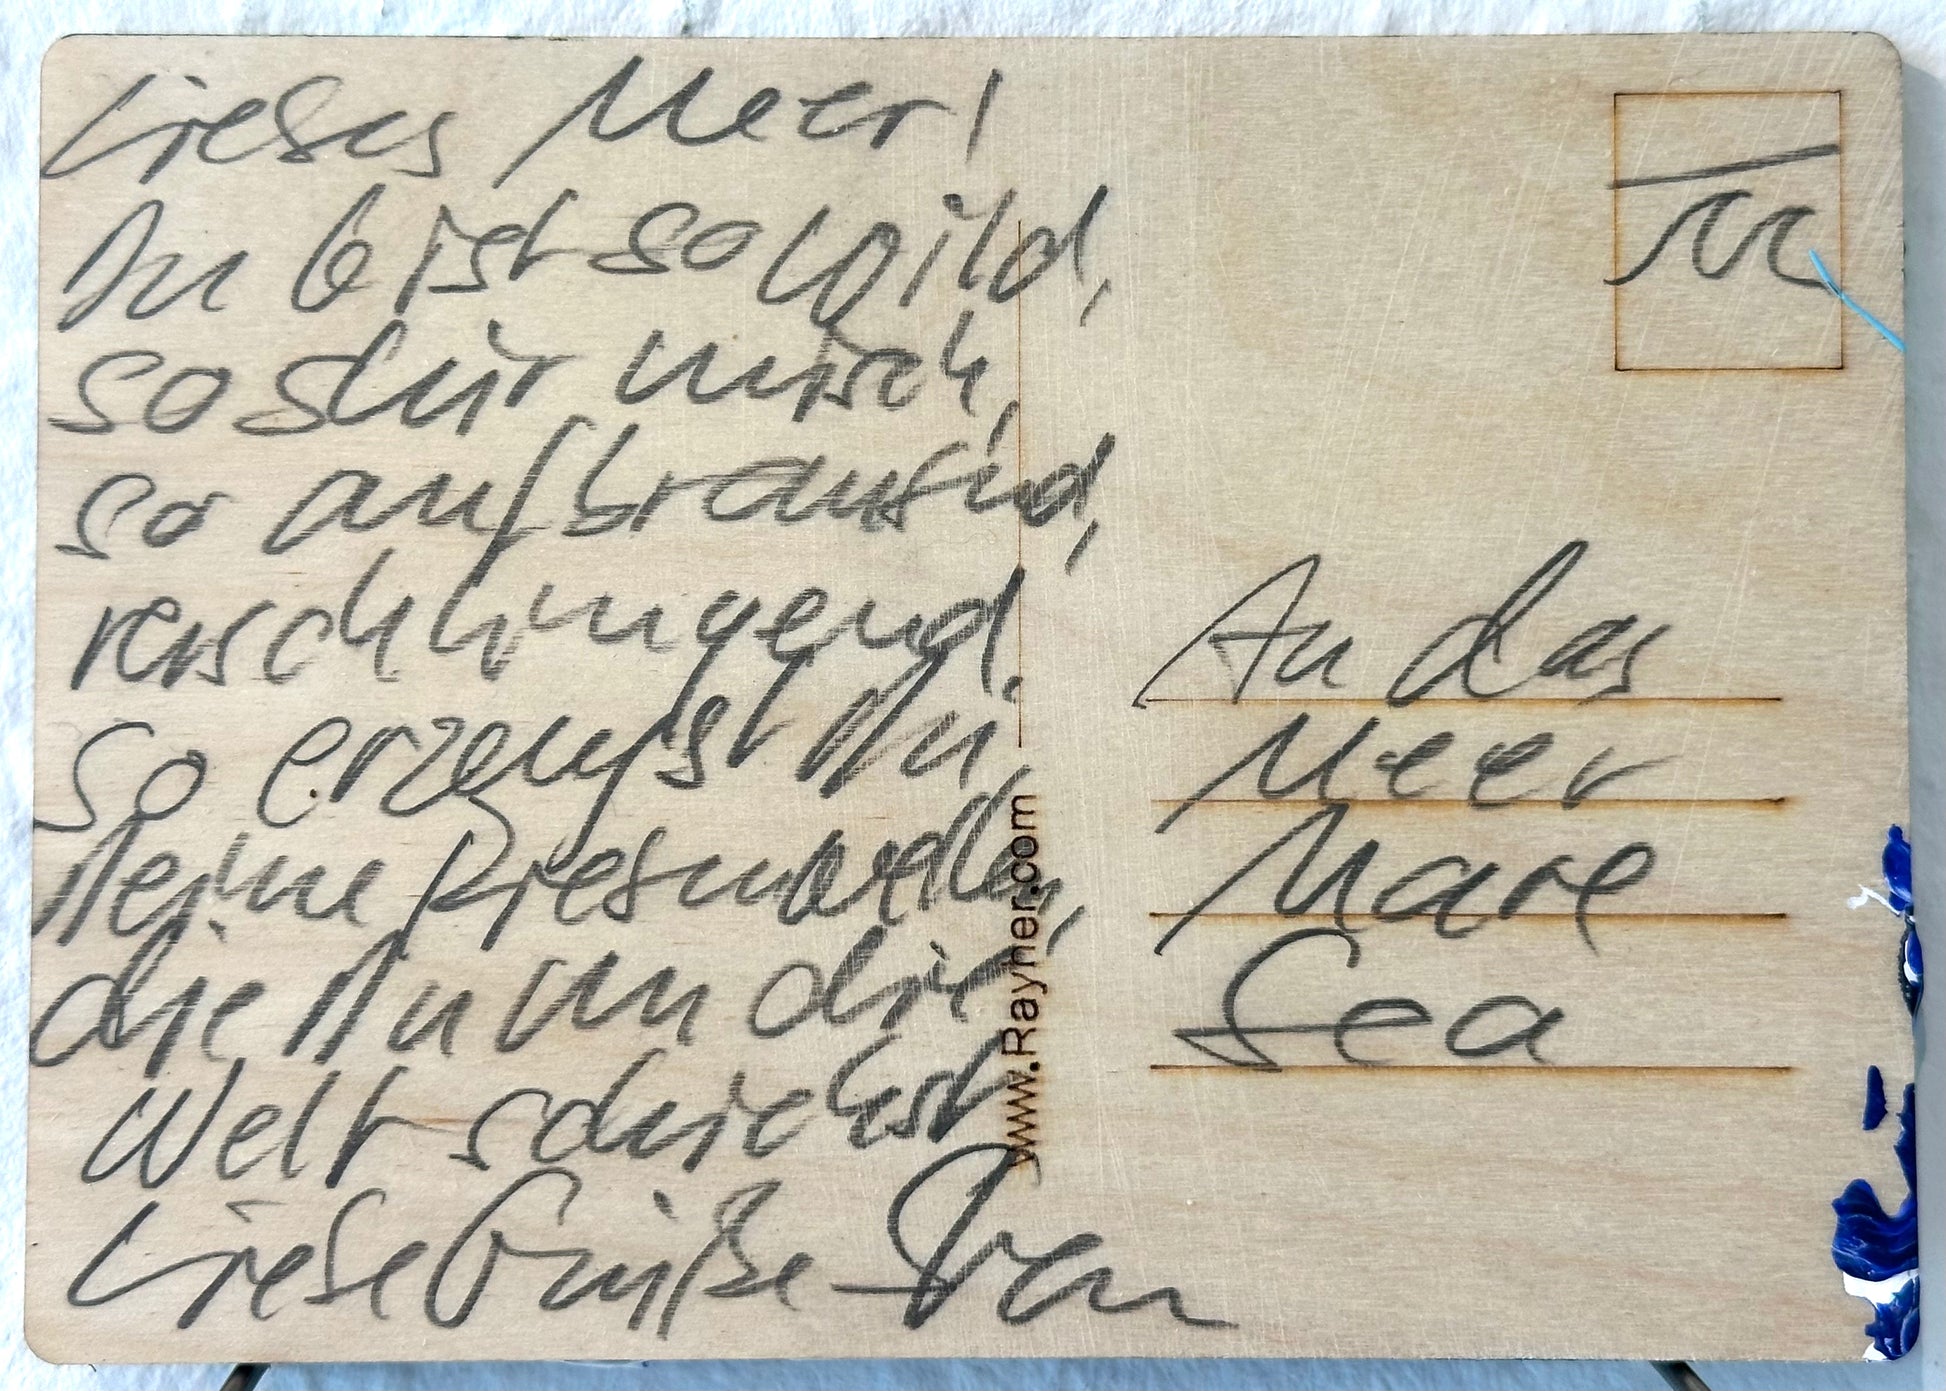 Liebes Meer!
Du bist so wild,
so stürmisch,
so aufbrausend,
verschlingend.
So erzeugst Du
Deine Riesenwellen,
die Du um die
Welt schickst
Liebe Grüße
www.Rayher.com
An das
Meer
Mare
Sea